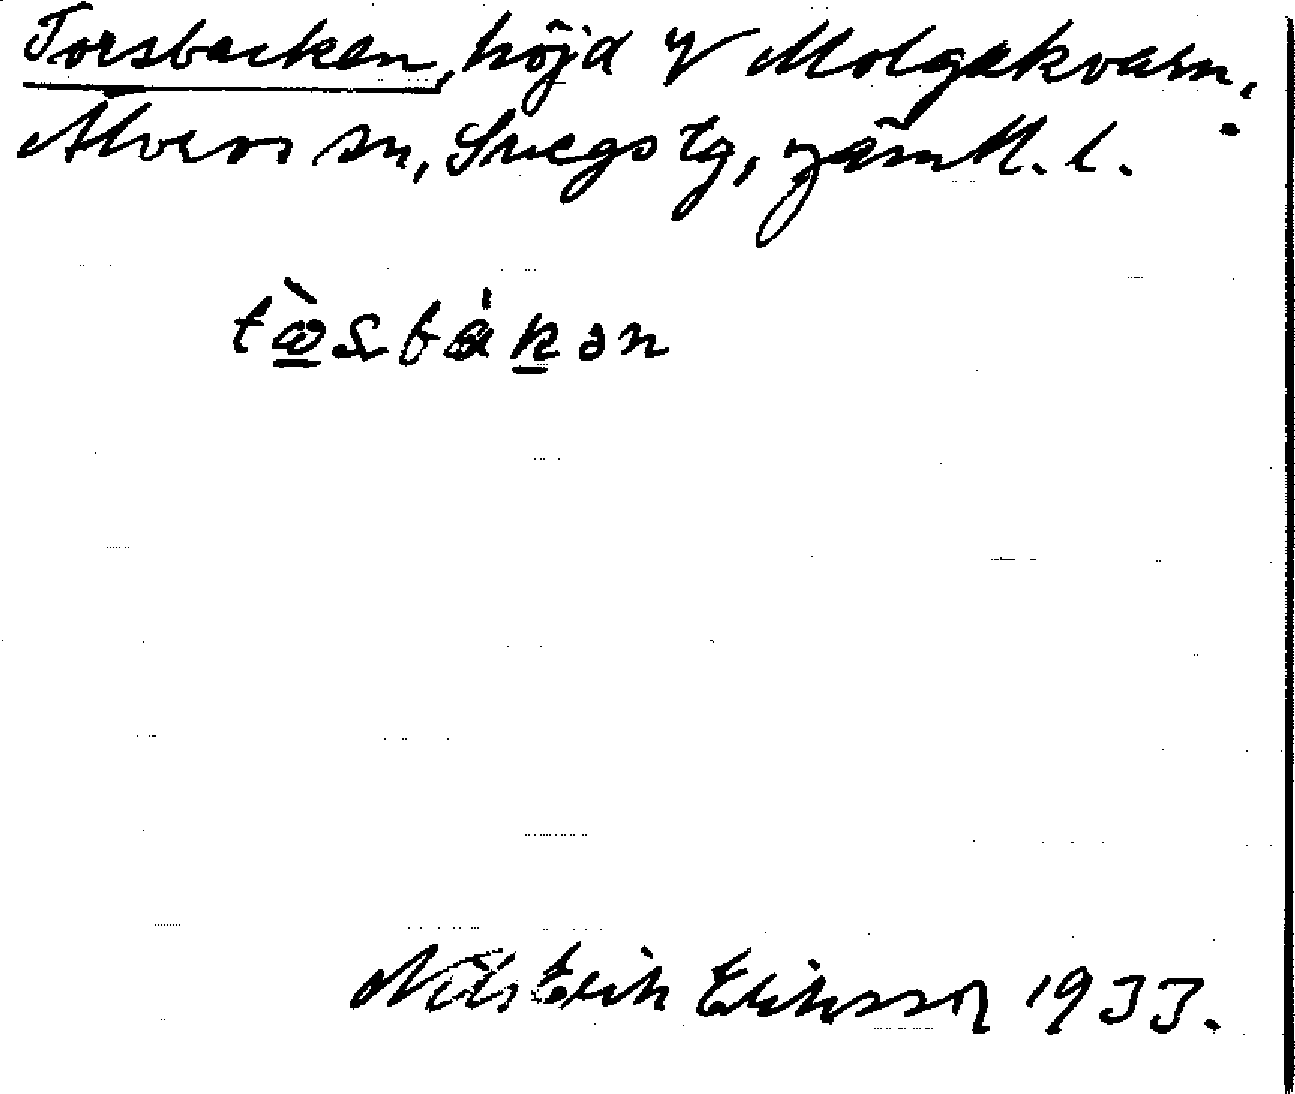 Torsbacken, höjd V Molgakvarn,
Älvros sn, Svegs tg, Jämtl. l.
tɷ̀sbákən
Nils Erik Eriksson 1933.